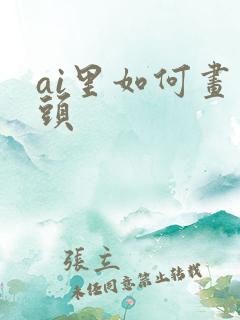 ai里如何畫
頭
張立
未任同意禁止转载